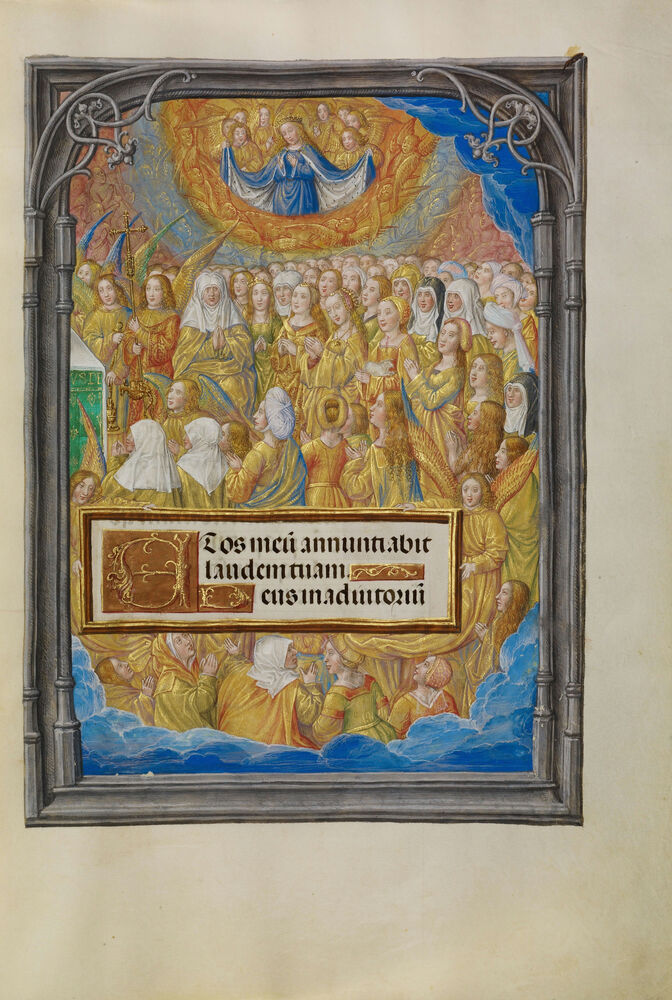 Et os meū annuntiabit
laudem tuam.
Deus in adiutoriū